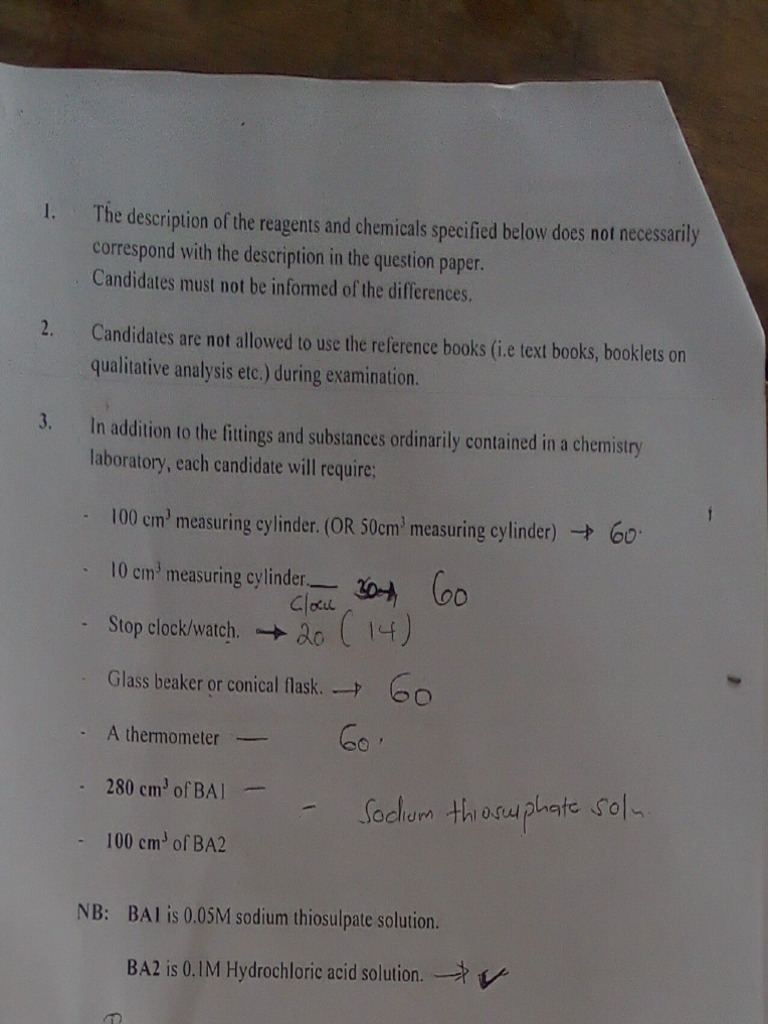 1. The description of the reagents and chemicals specified below does not necessarily
correspond with the description in the question paper.
Candidates must not be informed of the differences.
2. Candidates are not allowed to use the reference books (i.e text books, booklets on
qualitative analysis etc.) during examination.
3. In addition to the fittings and substances ordinarily contained in a chemistry
laboratory, each candidate will require;
- 100 cm³ measuring cylinder. (OR 50cm³ measuring cylinder) → 60.
- 10 cm³ measuring cylinder. — 60
Clock
- Stop clock/watch. → 20 (14)
- Glass beaker or conical flask. → 60
- A thermometer — 60.
- 280 cm³ of BA1 —
- Sodium thiosulphate soln
- 100 cm³ of BA2
NB: BA1 is 0.05M sodium thiosulpate solution.
BA2 is 0.1M Hydrochloric acid solution. → ✓